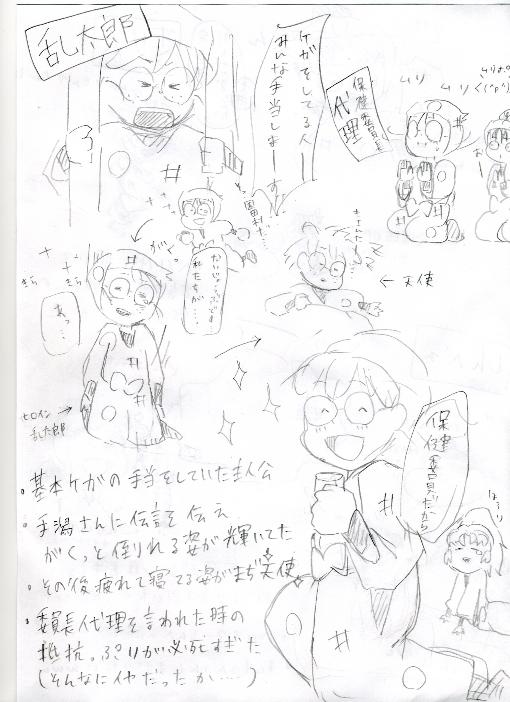 乱太郎
ケガをしてる人
みんな手当しまーーす
保健委員長
代理
ムリ
ムリ
お
がくっ
園田村
だいじょーぶです
おれたちが……
天使
きら
きら
あっ…
ヒロイン
乱太郎
保健委員だから
・基本ケガの手当をしていた主人公
・手潟さんに伝言を伝え
がくっと倒れる姿が輝いてた
・その後疲れて寝てる姿がまぢ天使
・委員長代理を言われた時の
抵抗っぷりが必死すぎた
(そんなにイヤだったか……)